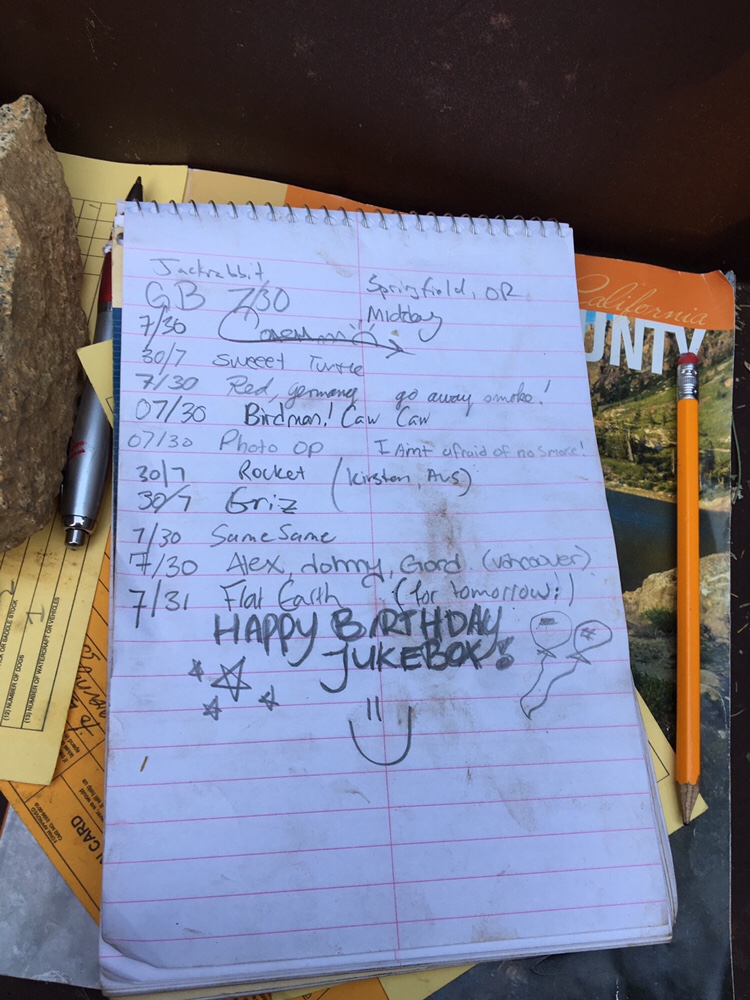 Jackrabbit Springfield, OR
GB 7/30 Midday
7/30
30/7 Sweeet Turtle
7/30 Red, germany go away smoke!
07/30 Birdman! Caw Caw
07/30 Photo op I Aint afraid of no smoke!
30/7 Rocket (Kirsten, Aus)
30/7 Griz
7/30 Same Same
7/30 Alex, Johnny, Gord (Vancouver)
7/31 Flat Earth (for tomorrow;)
HAPPY BIRTHDAY
JUKEBOX!
California
UNTY
(12) NUMBER OF DOGS
(13) NUMBER OF WATERCRAFT OR VEHICLES
CARD